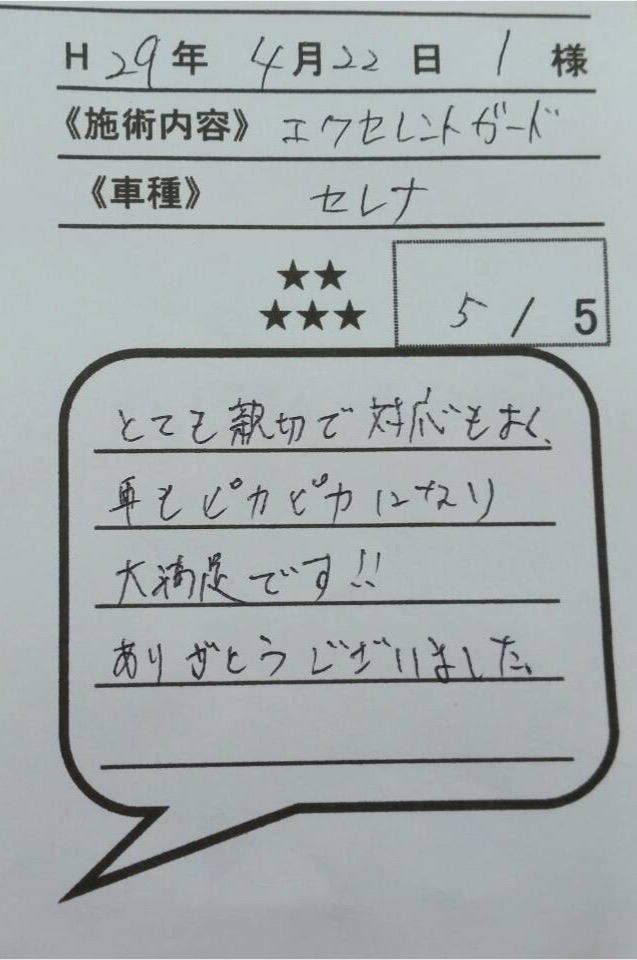 H 29年 4月22日 1様
《施術内容》 エクセレントガード
《車種》 セレナ
★★
★★★ 5/5
とても親切で対応もよく、
車もピカピカになり
大満足です!!
ありがとうございました。